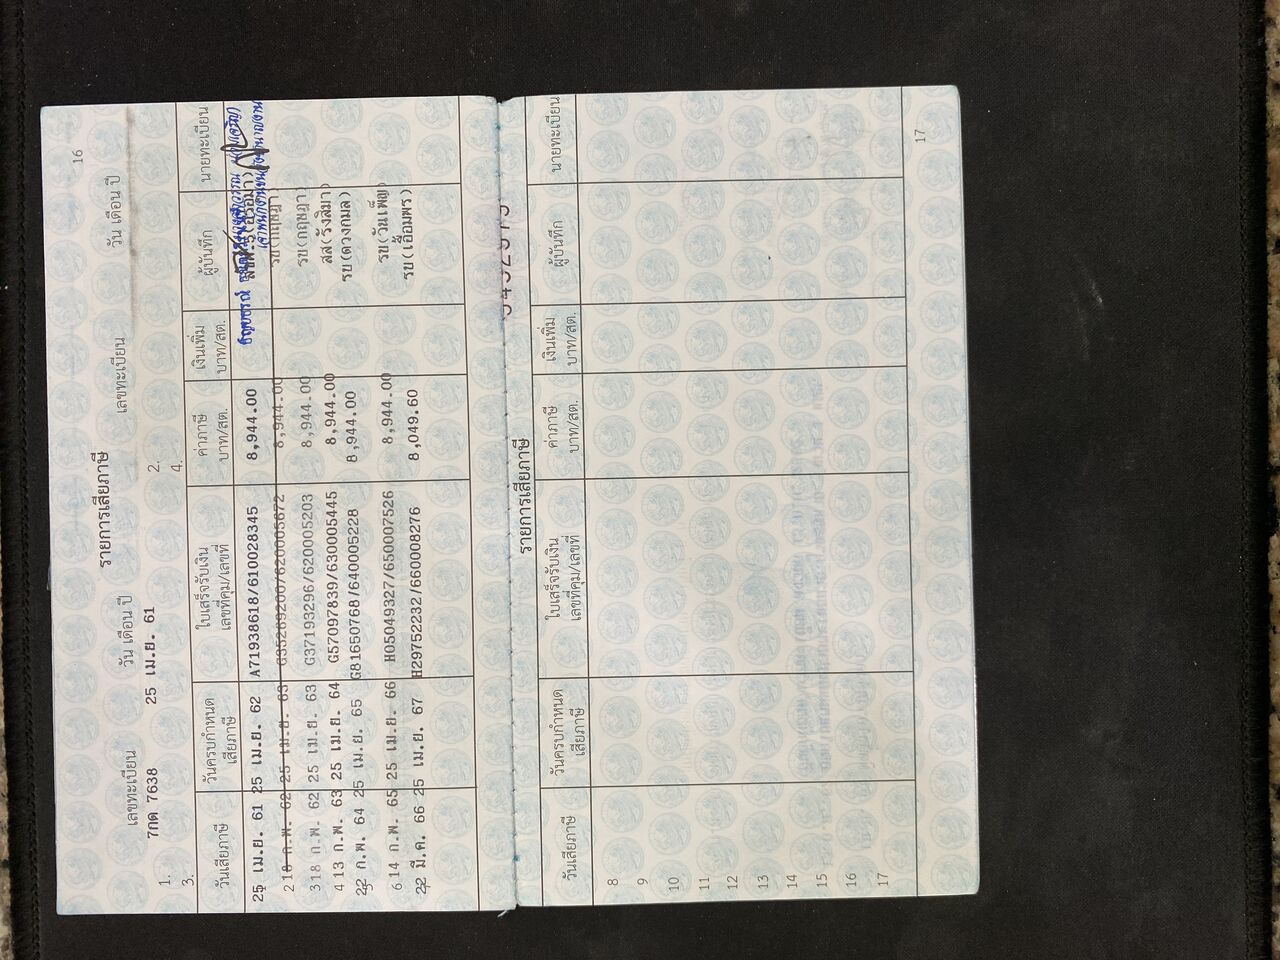 16
รายการเสียภาษี
เลขทะเบียน วัน เดือน ปี เลขทะเบียน วัน เดือน ปี
1. 7กด 7638 25 เม.ย. 61 2.
3. 4.
วันเสียภาษี วันครบกำหนดเสียภาษี ใบเสร็จรับเงิน เลขที่คุม/เลขที่ ค่าภาษี บาท/สต. เงินเพิ่ม บาท/สต. ผู้บันทึก นายทะเบียน
25 เม.ย. 61 25 เม.ย. 62 A71938618/610028345 8,944.00
2 18 ก.พ. 62 25 เม.ย. 63 8,944.00 รบ(กฤษฎา)
3 18 ก.พ. 62 25 เม.ย. 63 G37193296/620005203 8,944.00 รบ(กฤษฎา)
4 13 ก.พ. 63 25 เม.ย. 64 G57097839/630005445 8,944.00 สส(รังสิมา)
22 ก.พ. 64 25 เม.ย. 65 G81650768/640005228 8,944.00 รบ(ดวงกมล)
6 14 ก.พ. 65 25 เม.ย. 66 H05049327/650007526 8,944.00 รบ(วันเพ็ญ)
22 มี.ค. 66 25 เม.ย. 67 H29752232/660008276 8,049.60 รบ(เอื้อมพร)
รายการเสียภาษี
วันเสียภาษี วันครบกำหนดเสียภาษี ใบเสร็จรับเงิน เลขที่คุม/เลขที่ ค่าภาษี บาท/สต. เงินเพิ่ม บาท/สต. ผู้บันทึก นายทะเบียน
8
9
10
11
12
13
14
15
16
17
17